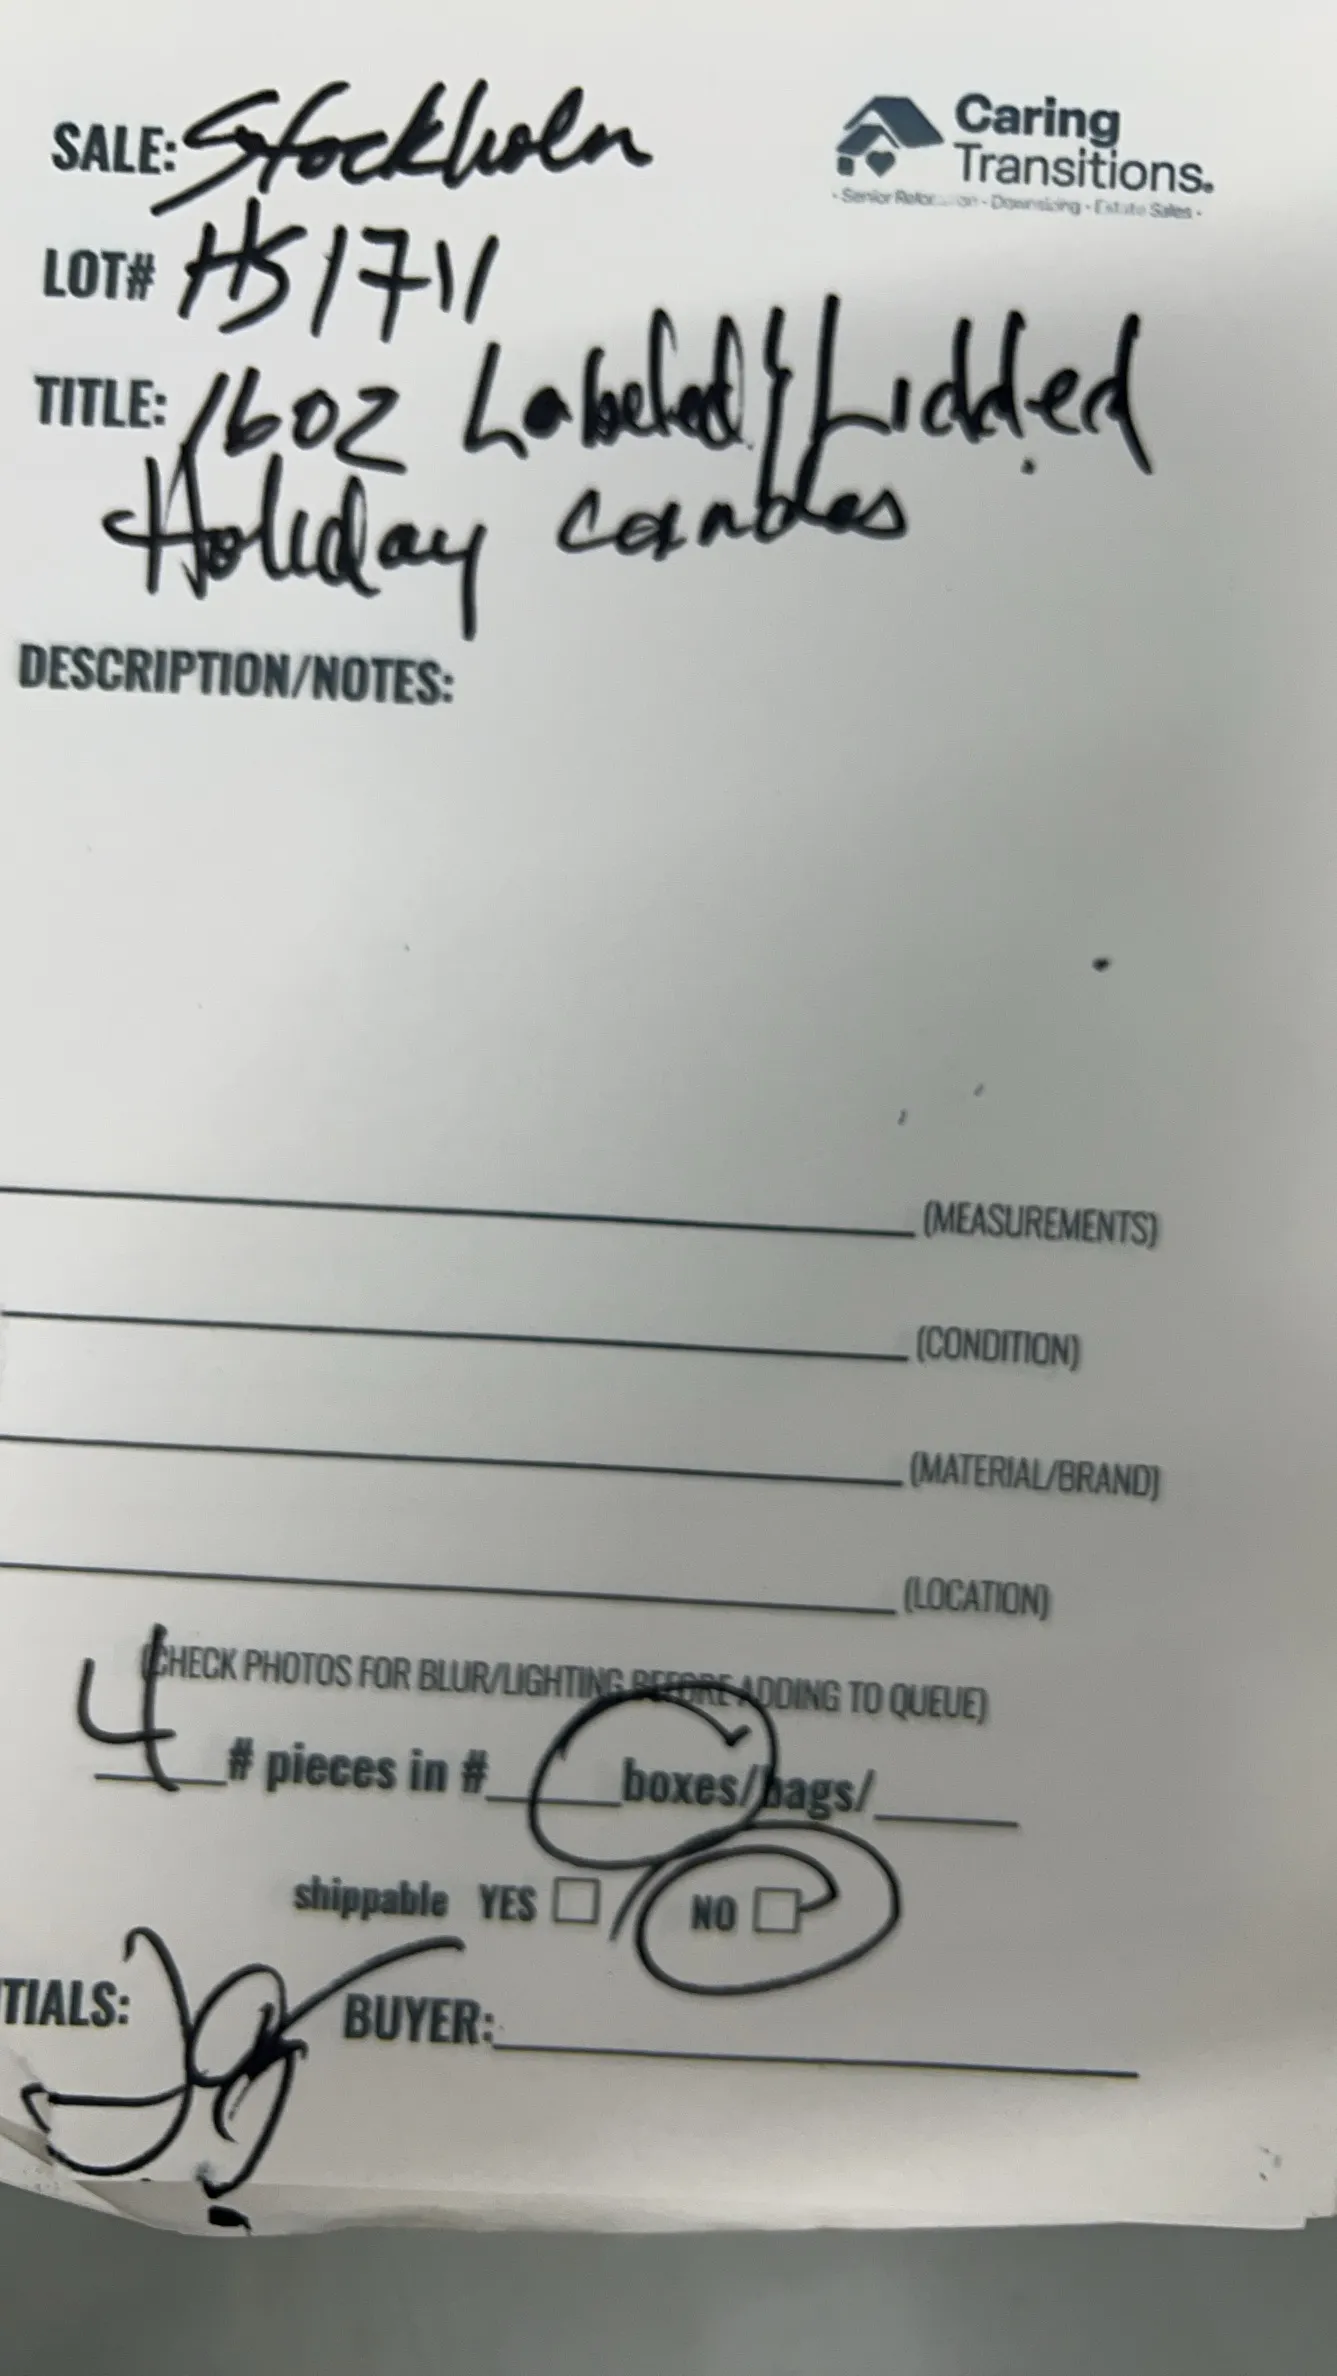 SALE: Stockholm
Caring
Transitions.
- Senior Relocation - Downsizing - Estate Sales -
LOT# HS1711
TITLE: 16oz Labeled & Lidded
Holiday candles
DESCRIPTION/NOTES:
(MEASUREMENTS)
(CONDITION)
(MATERIAL/BRAND)
(LOCATION)
(CHECK PHOTOS FOR BLUR/LIGHTING BEFORE ADDING TO QUEUE)
4 # pieces in # boxes/bags/
shippable YES NO
TIALS: BUYER: